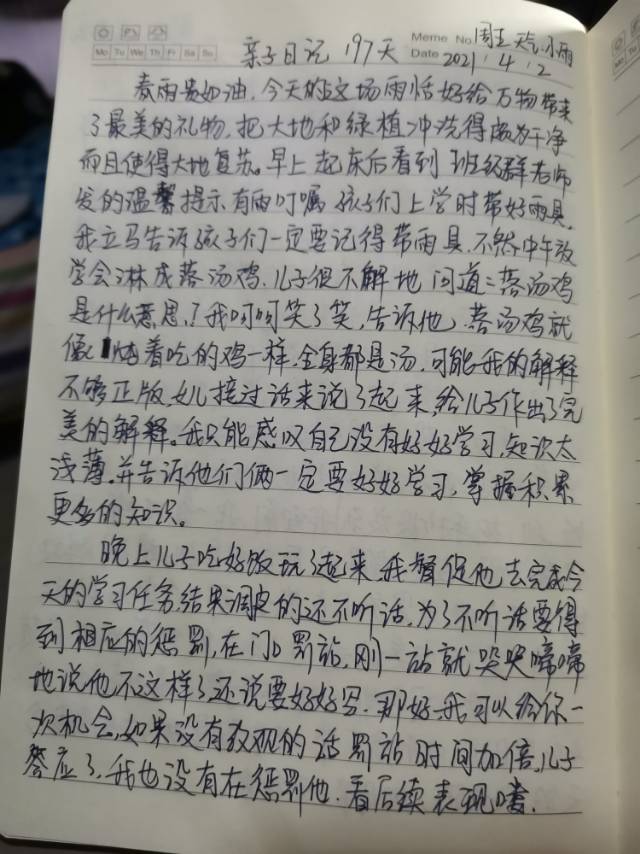 Mo Tu We Th Fr Sa Su
亲子日记 197天
Memo No. 周五 天气:小雨
Date 2021.4.2
春雨贵如油,今天的这场雨恰好给万物带来
了最美的礼物,把大地和绿植冲洗得颇为干净
而且使得大地复苏。早上起床后看到班级群老师
发的温馨提示,有雨叮嘱孩子们上学时带好雨具,
我立马告诉孩子们一定要记得带雨具,不然中午放
学会淋成落汤鸡,儿子很不解地问道:落汤鸡
是什么意思?我呵呵笑了笑,告诉他,落汤鸡就
像炖着吃的鸡一样,全身都是汤,可能我的解释
不够正版,女儿接过话来说了起来,给儿子作出了完
美的解释。我只能感叹自己没有好好学习,知识太
浅薄。并告诉他们俩一定要好好学习,掌握积累
更多的知识。
晚上儿子吃好饭玩了起来,我督促他去完成今
天的学习任务,结果调皮的还不听话,为了不听话要得
到相应的惩罚,在门口罚站,刚一站就哭哭啼啼
地说他不这样了,还说要好好写,那好,我可以给你一
次机会,如果没有教观的话罚站时间加倍,儿子
答应了,我也没有在惩罚他,看后续表现喽.